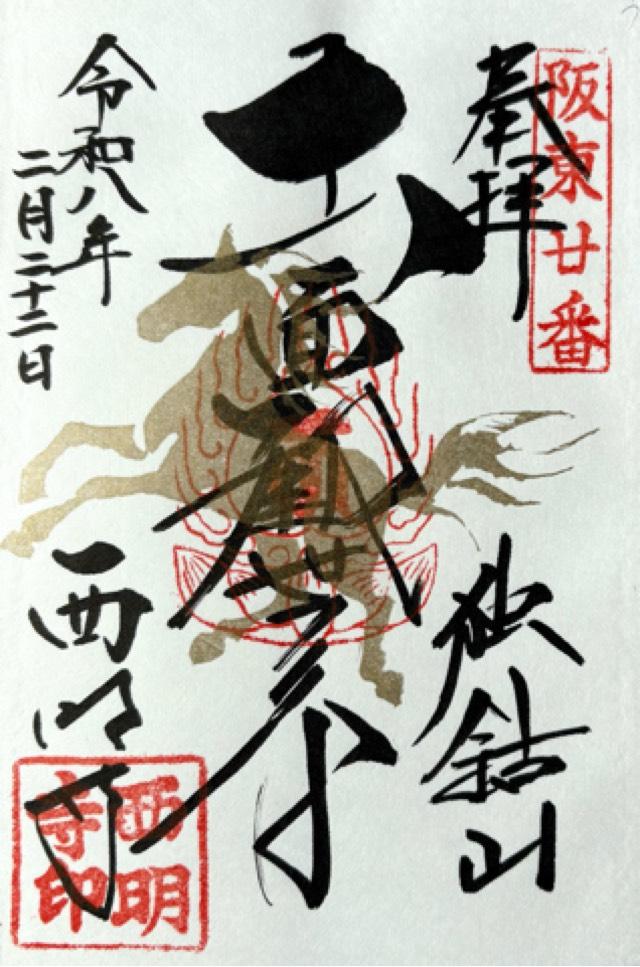 阪東廿番
奉拝
独鈷山
十一面観世音
西明寺
令和八年
二月二十二日
西明寺印